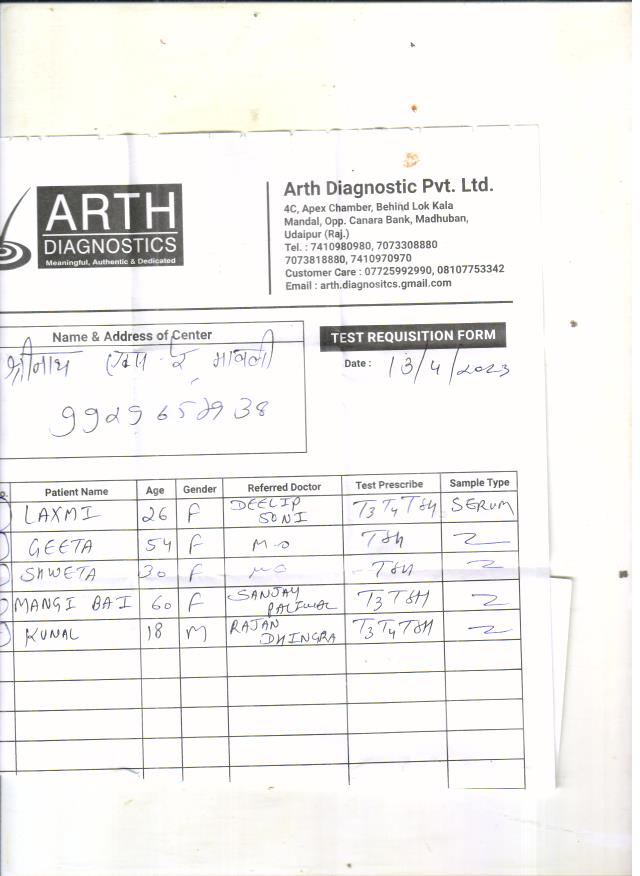 ARTH
DIAGNOSTICS
Meaningful, Authentic & Dedicated
Arth Diagnostic Pvt. Ltd.
4C, Apex Chamber, Behind Lok Kala
Mandal, Opp. Canara Bank, Madhuban,
Udaipur (Raj.)
Tel. : 7410980980, 7073308880
7073818880, 7410970970
Customer Care : 07725992990, 08107753342
Email : arth.diagnositcs.gmail.com
Name & Address of Center
श्रीनाथ
TEST REQUISITION FORM
Date : 13/4/2023
Patient Name Age Gender Referred Doctor Test Prescribe Sample Type
LAXMI 26 F DEELIP SONI T3 T4 TSH SERUM
GEETA 54 F M-O TSH
SHWETA 30 F MO TSH
MANGI BAI 60 F SANJAY PALIWAL T3 TSH
KUNAL 18 M RAJAN DHINGRA T3 T4 TSH